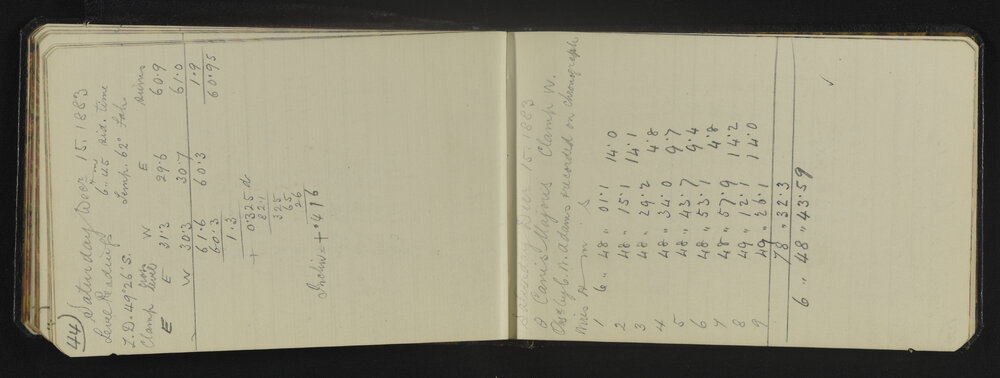 44) Saturday Decr 15. 1883
Level Readings 6h 45m sid. time
Z.D. 49°26' S. Temp. 62° Fah.
Clamp Iron level W E Sums
E E 31.3 29.6 60.9
W 30.3 30.7 61.0
61.6 60.3 1.9
60.3 60.95
1.3
+ 0.325 d
82.1
325
65
26
Inclin = + .416
Saturday Decr 15. 1883
Canis Majoris Clamp W.
Obs by C. N. Adams & recorded on chronograph
Wires H m s
1 6 " 48 " 01.1 14.0
2 48 " 15.1 14.1
3 48 " 29.2 4.8
4 48 " 34.0 9.7
5 48 " 43.7 9.4
6 48 " 53.1 4.8
7 48 " 57.9 14.2
8 49 " 12.1 14.0
9 49 " 26.1
78 " 32.3
6 " 48 " 43.59